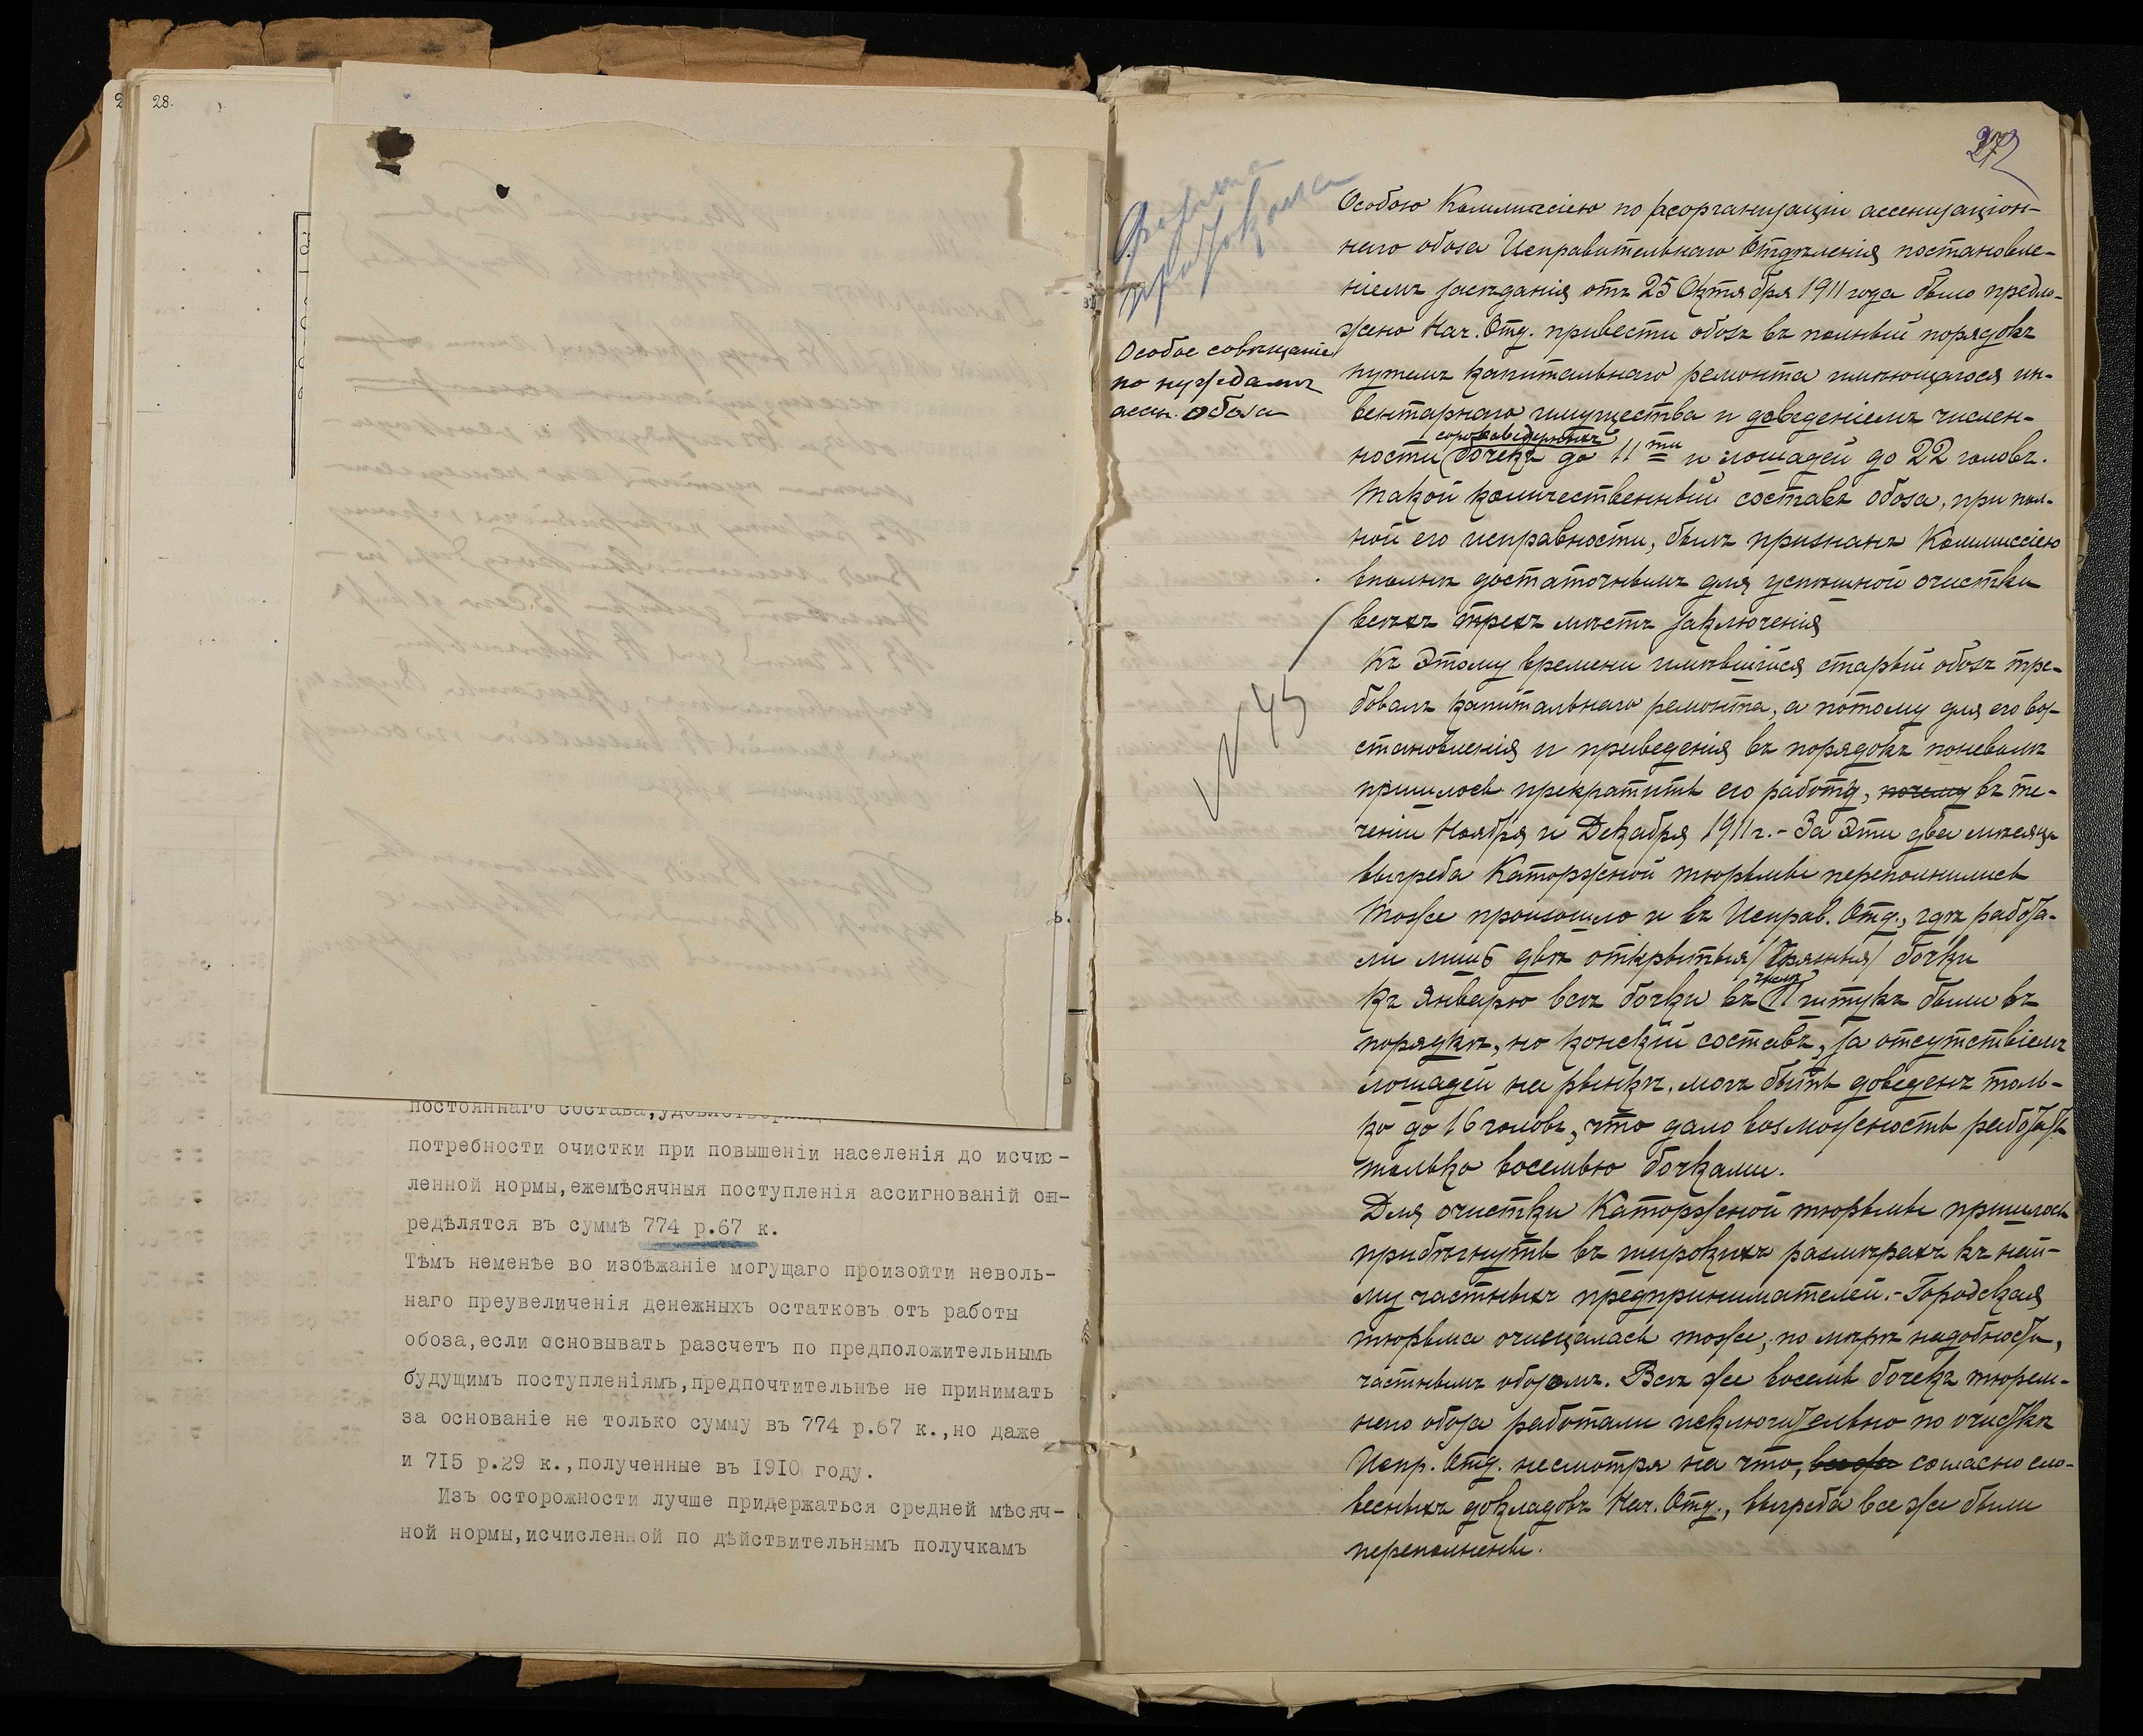 28.
постояннаго состава,
потребности очистки при повышеніи населенія до исчис-
ленной нормы,ежемѣсячныя поступленія ассигнованій оп-
редѣлятся въ суммѣ 774 р.67 к.
Тѣмъ неменѣе во избѣжаніе могущаго произойти неволь-
наго преувеличенія денежныхъ остатковъ отъ работы
обоза,если основывать разсчетъ по предположительнымъ
будущимъ поступленіямъ,предпочтительнѣе не принимать
за основаніе не только сумму въ 774 р.67 к.,но даже
и 715 р.29 к.,полученные въ 1910 году.
Изъ осторожности лучше придержаться средней мѣсяч-
ной нормы,исчисленной по дѣйствительнымъ получкамъ
Форма
протокола
Особое совѣщаніе
по нуждамъ
ассен. обоза
№ 45
Особою Коммиссіею по реорганизаціи ассенизаціон-
наго обоза Исправительнаго Отдѣленія постановле-
ніемъ засѣданія отъ 25 Октября 1911 года было предло-
жено Нач. Отд. привести обозъ въ полный порядокъ
путемъ капитальнаго ремонта имѣющагося ин-
вентарнаго имущества и доведеніемъ числен-
сороковедерныхъ
ности бочекъ до 11ти и лошадей до 22 головъ.
Такой количественный составъ обоза, при пол-
ной его исправности, былъ признанъ Коммиссіею
вполнѣ достаточнымъ для успѣшной очистки
всѣхъ трехъ мѣстъ заключенія
Къ этому времени имѣвшійся старый обозъ тре-
бовалъ капитальнаго ремонта, а потому для его воз-
становленія и приведенія въ порядокъ поневолѣ
пришлось прекратить его работу, почему въ те-
ченіи Ноября и Декабря 1911 г. - За эти два мѣсяца
выгреба Каторжной тюрьмы переполнились
Тоже произошло и въ Исправ. Отд., гдѣ работа-
ли лишь двѣ открытыя /грязныя/ бочки
числѣ
Къ Январю всѣ бочки въ 11 штукъ были въ
порядкѣ, но конскій составъ, за отсутствіемъ
лошадей на рынкѣ, могъ быть доведенъ толь-
ко до 16 головъ, что дало возможность работать
только восемью бочками.
Для очистки Каторжной тюрьмы пришлось
прибѣгнуть въ широкихъ размѣрахъ къ най-
му частныхъ предпринимателей. - Городская
тюрьма очищалась тоже, по мѣрѣ надобности,
частнымъ обозомъ. Всѣ же восемь бочекъ тюрем-
наго обоза работали исключительно по очисткѣ
Испр. Отд. несмотря на что, все же согласно сло-
весныхъ докладовъ Нач. Отд., выгреба все же были
переполнены.